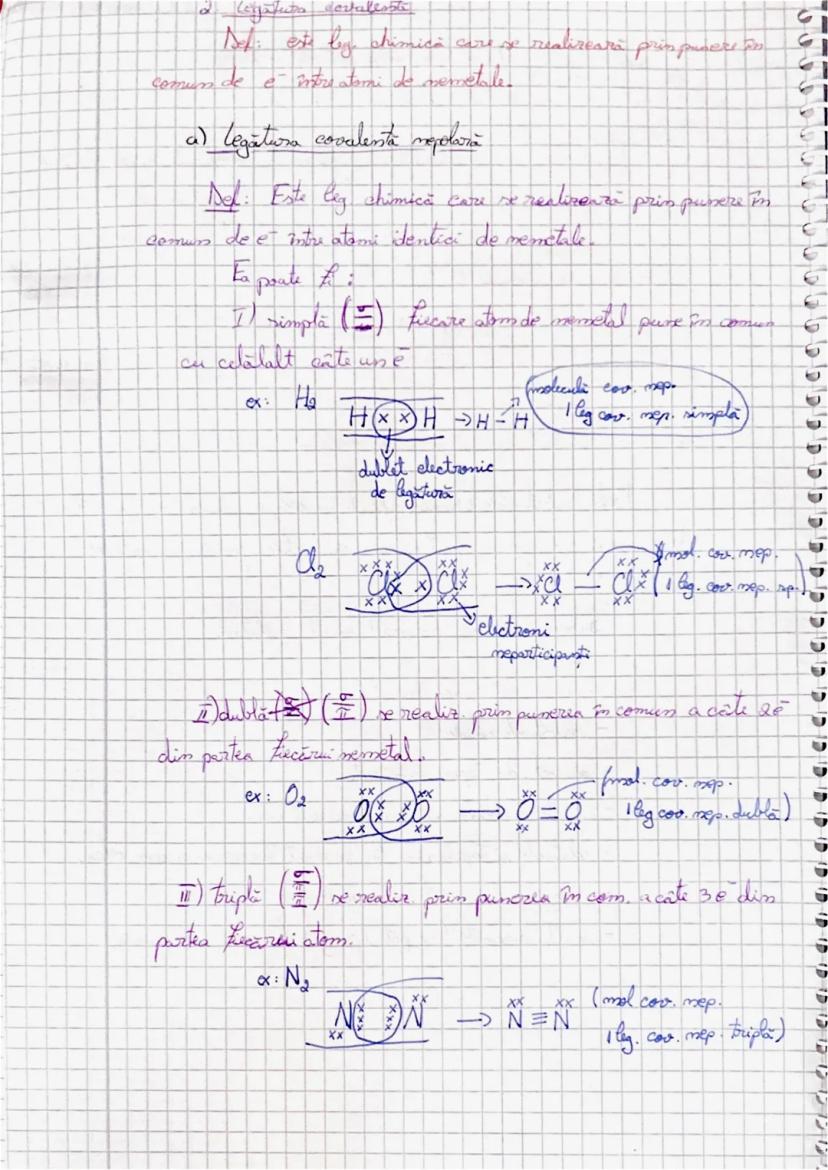 2. Legătura covalentă
Def: este leg. chimică care se realizează prin punere în
comun de e⁻ între atomi de nemetale.
a) Legătura covalentă nepolară
Def: Este leg. chimică care se realizează prin punere în
comun de e⁻ între atomi identici de nemetale.
Ea poate fi:
I) simplă (σ) fiecare atom de nemetal pune în comun
cu celălalt câte un e⁻
ex: H₂ H(x x)H → H – H (moleculă cov. nep.
1 leg cov. nep. simplă)
dublet electronic
de legătură
Cl₂ Cl x x Cl → Cl — Cl (mol. cov. nep.
1 leg. cov. nep. sp.)
electroni
neparticipanți
II) dublă (σ π) se realiz. prin punerea în comun a câte 2e⁻
din partea fiecărui nemetal.
ex: O₂ O xx xx O → O = O (mol. cov. nep.
1 leg cov. nep. dublă)
III) triplă (σ π π) se realiz. prin punerea în com. a câte 3e⁻ din
partea fiecărui atom.
ex: N₂ N xxx xxx N → N ≡ N (mol cov. nep.
1 leg. cov. nep. triplă)